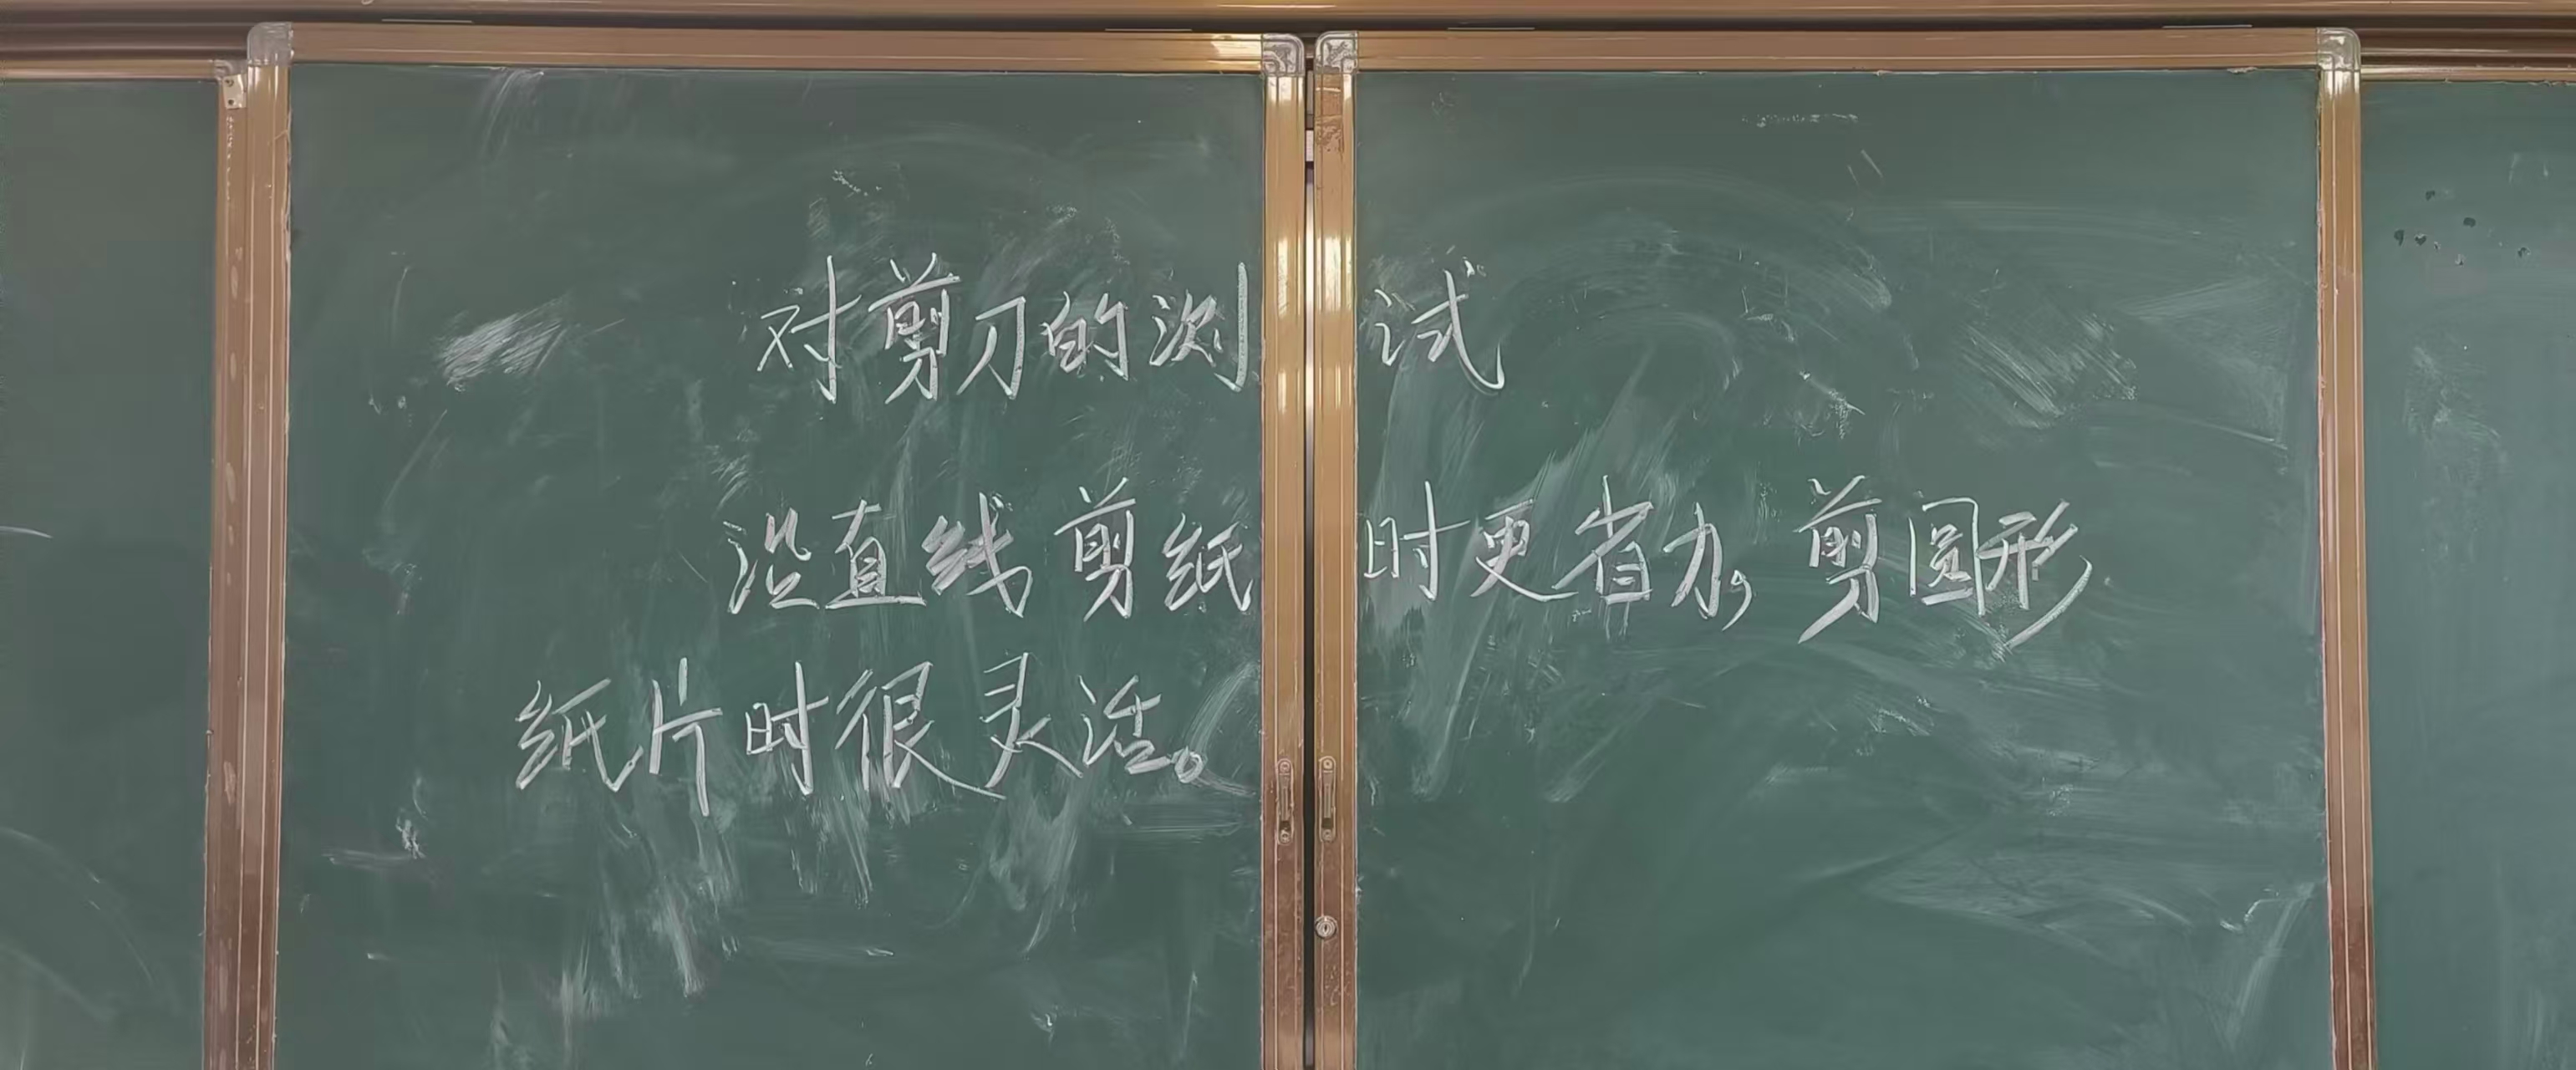 对剪刀的测试
沿直线剪纸时更省力,剪圆形
纸片时很灵活。